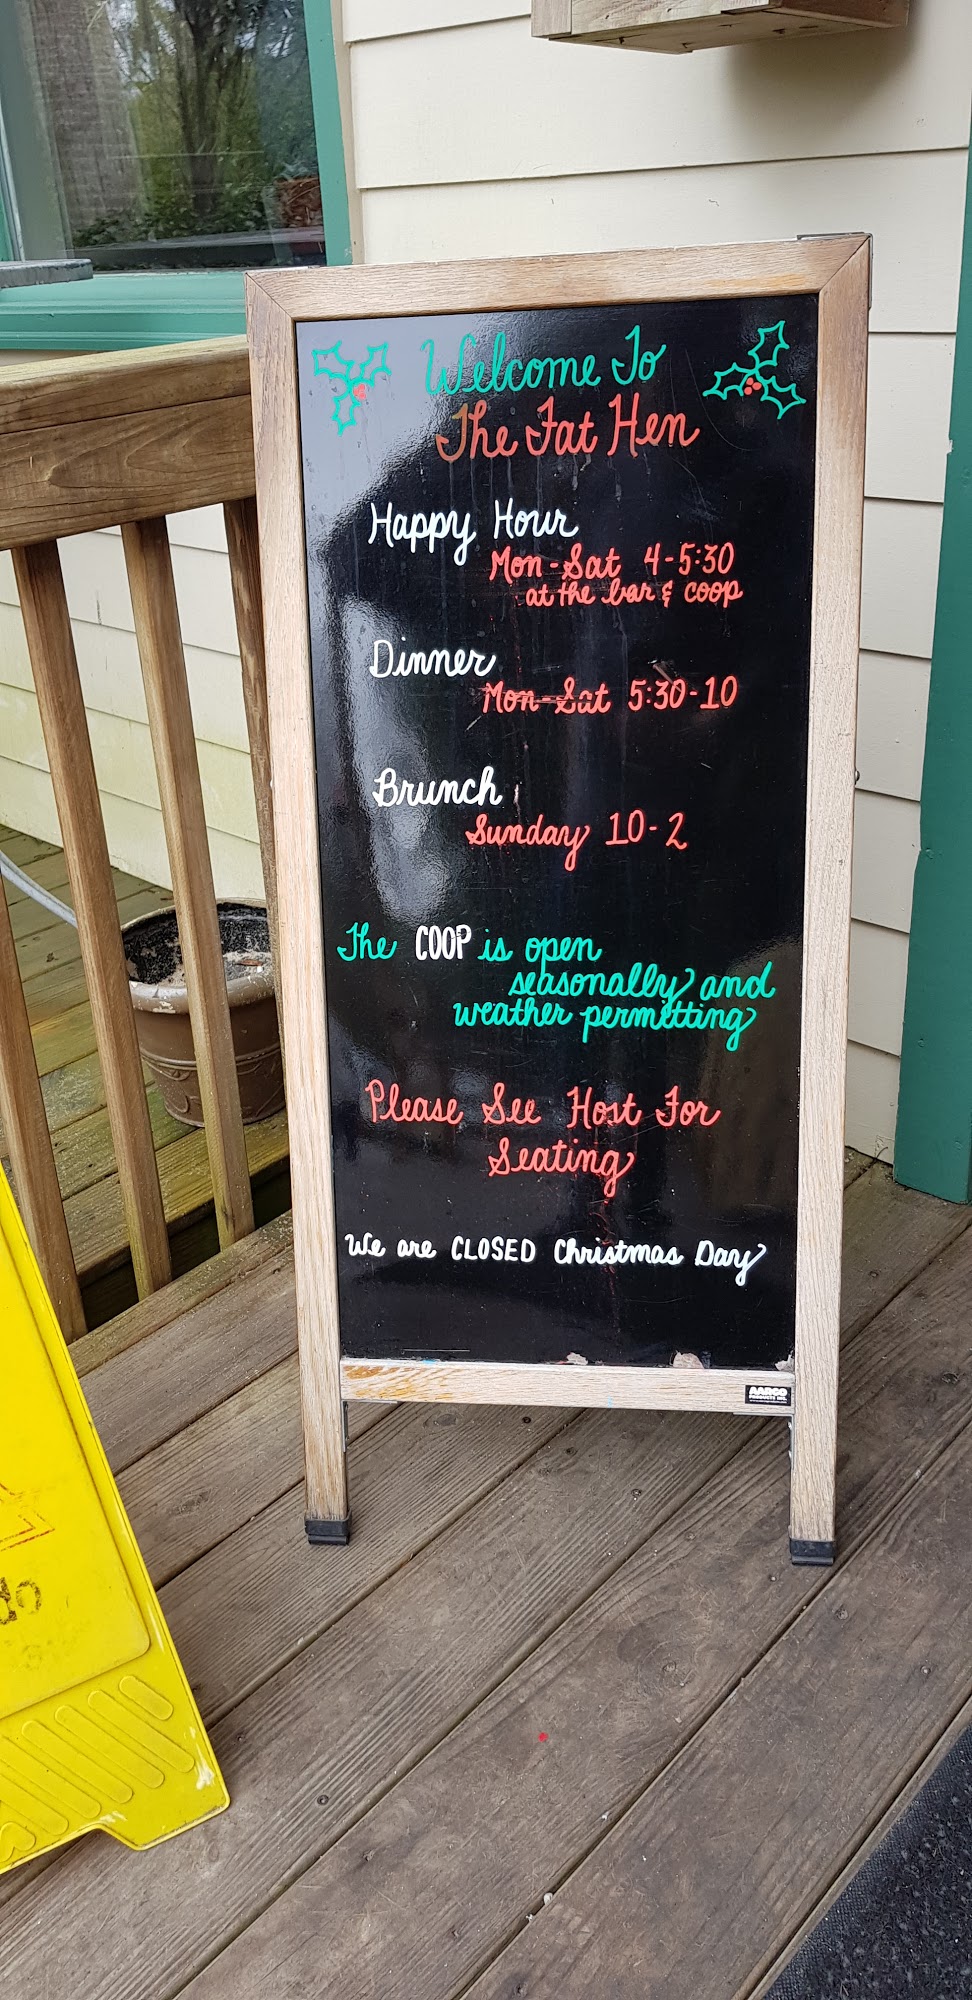 Welcome To
The Fat Hen
Happy Hour
Mon-Sat 4-5:30
at the bar & coop
Dinner
Mon-Sat 5:30-10
Brunch
Sunday 10-2
The COOP is open
seasonally and
weather permitting
Please See Host For
Seating
We are CLOSED Christmas Day
AARCO
PRODUCTS INC.
do